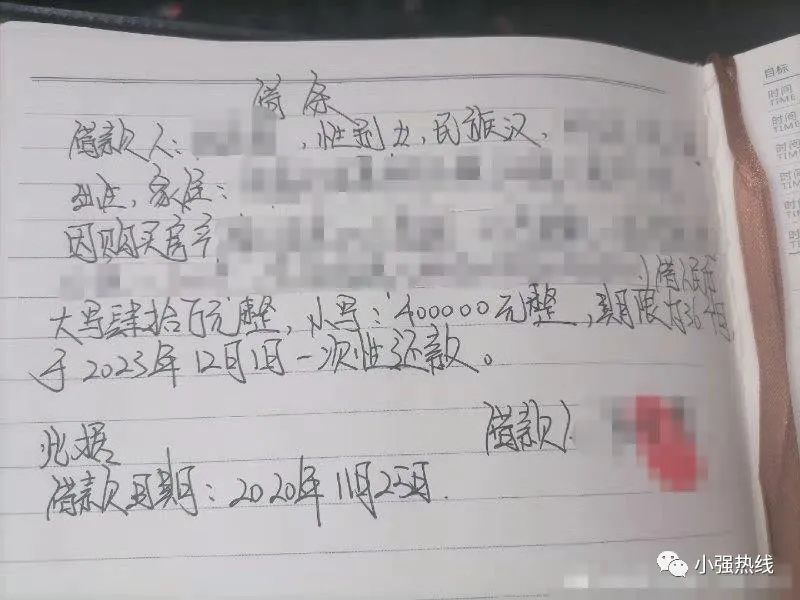 借条
借款人： ，性别 ，民族汉，
出生，家住：
因购买房产
，借人民币
大写肆拾万元整，小写：400000元整，期限为36个月，
于2023年12月1日一次性还款。
此据
借款人：
借款日期：2020年11月25日.
目标
时间
TIME
时间
TIME
时间
TIME
时间
TIME
时间
TIME
时间
TIME
小强热线